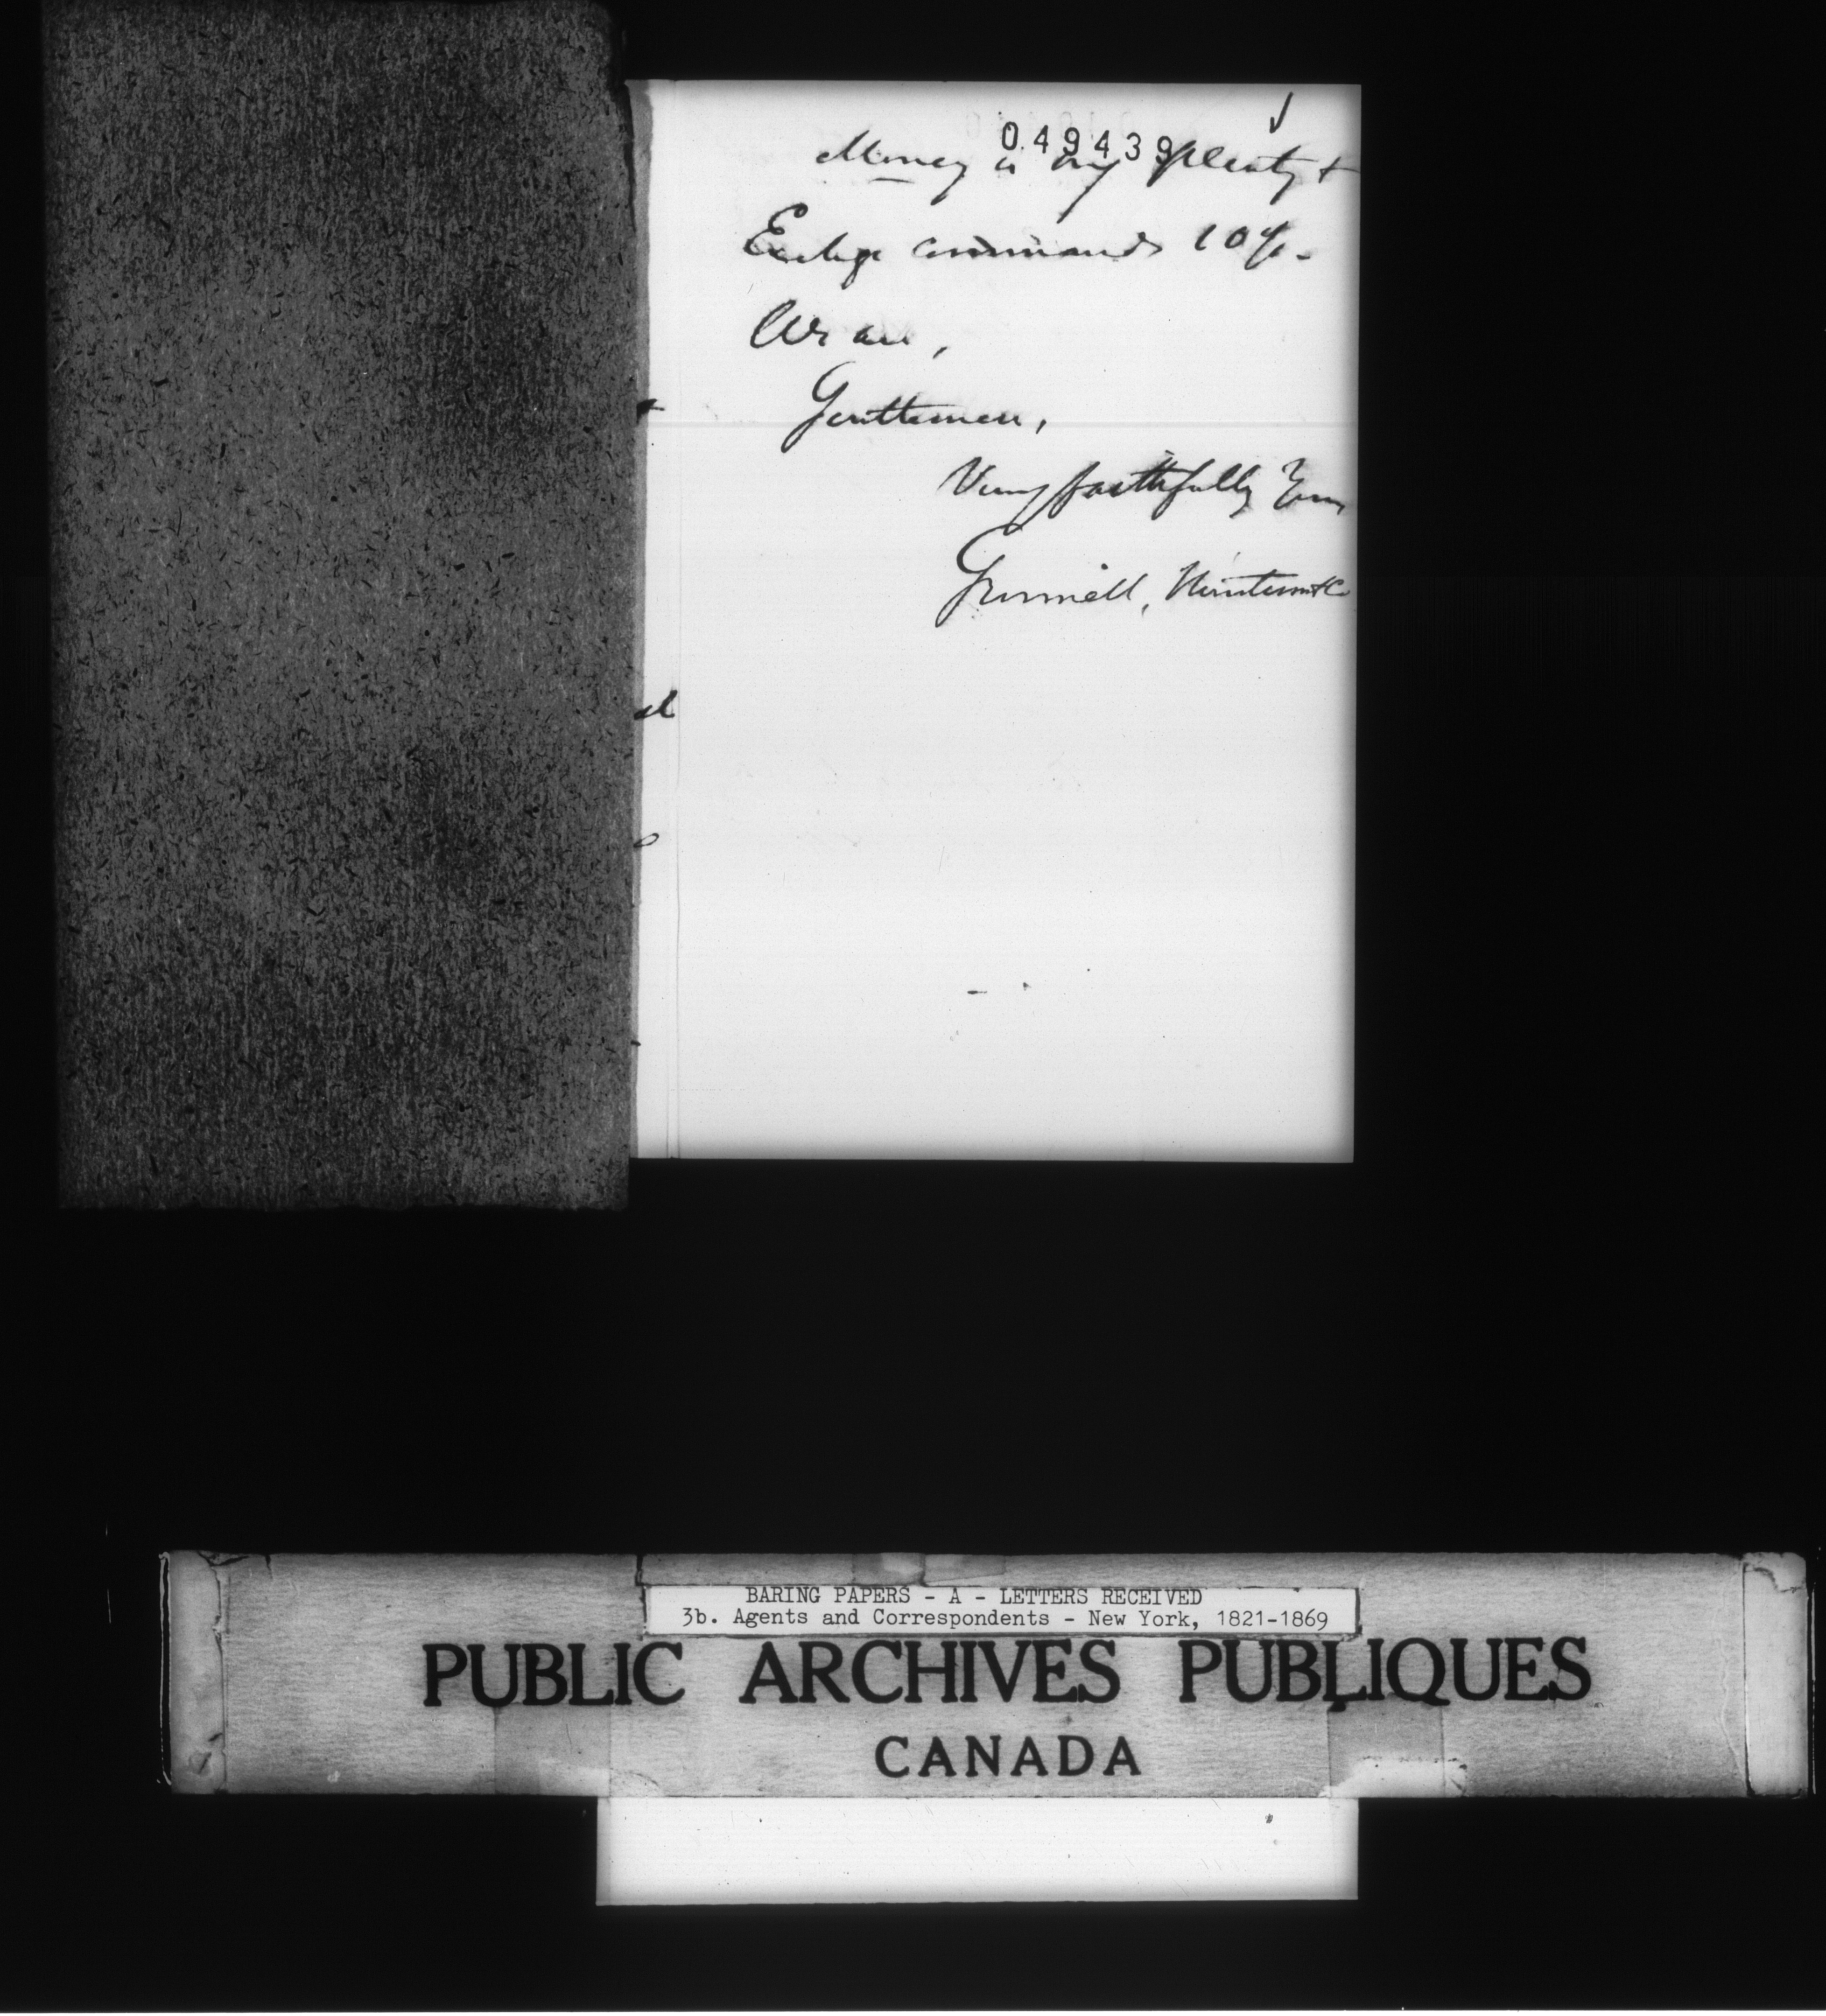 049439
Money is very plenty +
Exchge commands 10%.
We are,
Gentlemen,
Very faithfully Yours,
Grinnell, Minturn & Co
BARING PAPERS - A - LETTERS RECEIVED
3b. Agents and Correspondents - New York, 1821-1869
PUBLIC ARCHIVES PUBLIQUES
CANADA